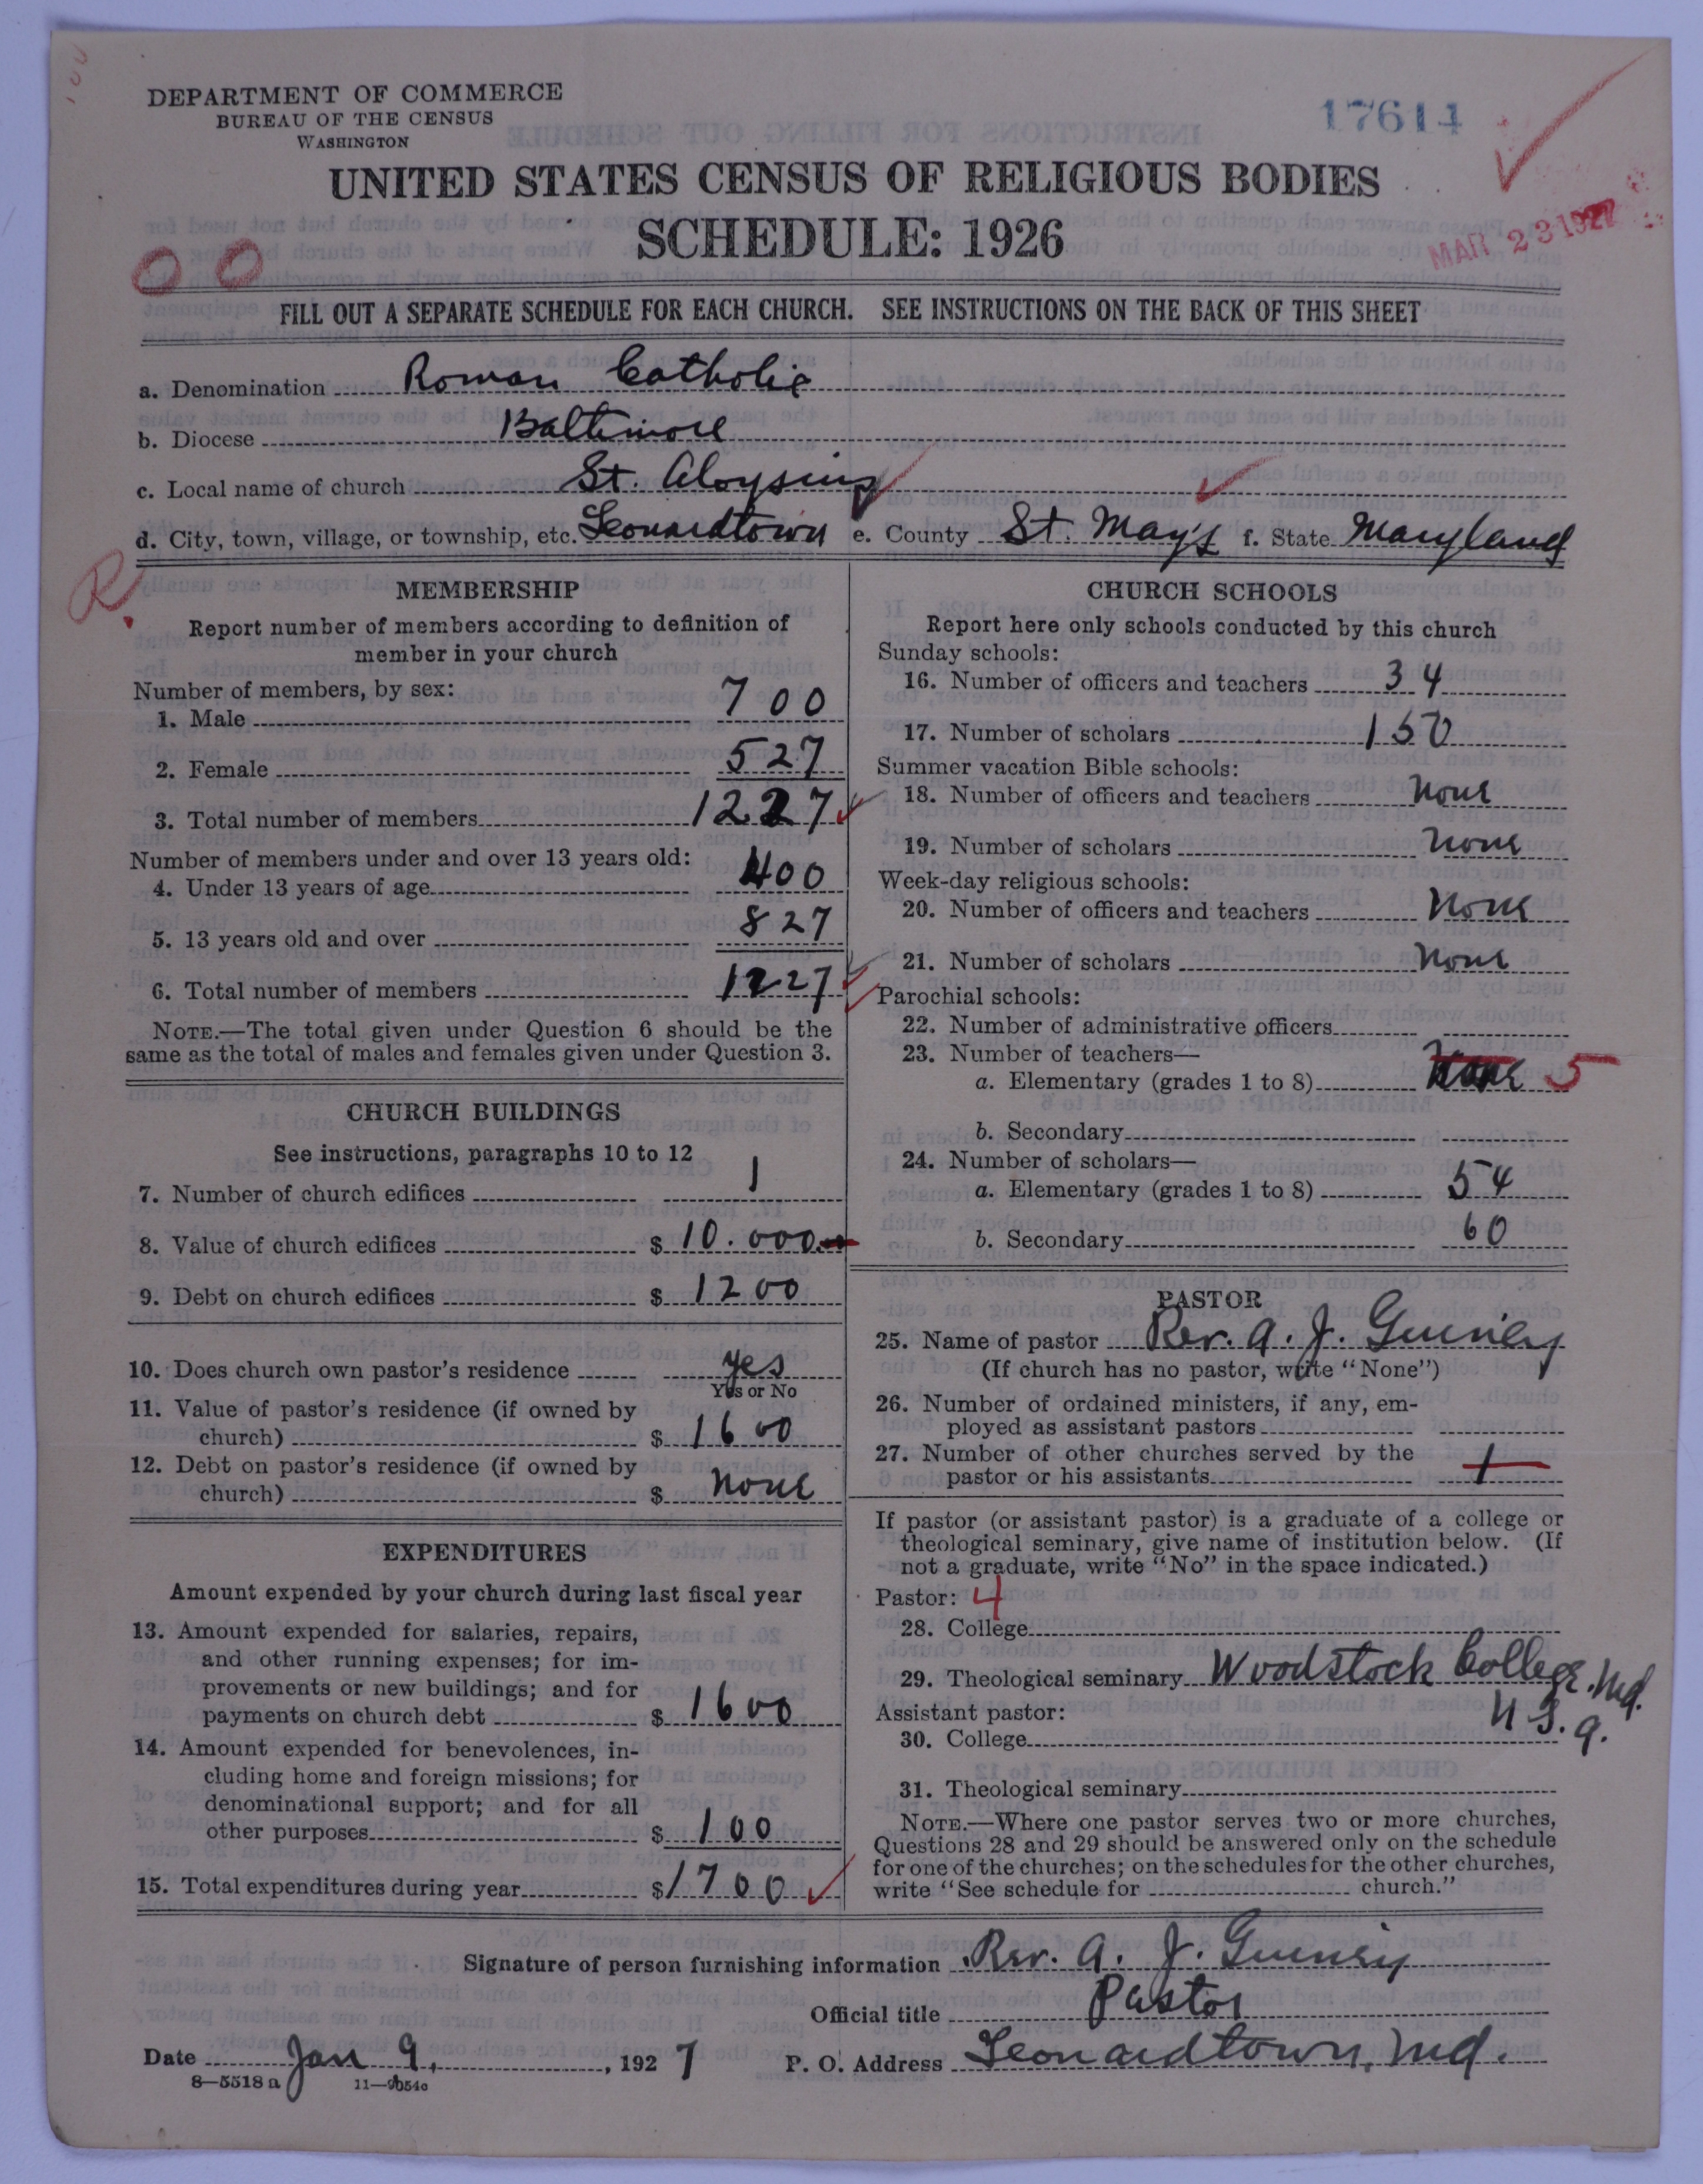 DEPARTMENT OF COMMERCE
BUREAU OF THE CENSUS
WASHINGTON
17614
UNITED STATES CENSUS OF RELIGIOUS BODIES
SCHEDULE: 1926
MAR 23 1927
00
FILL OUT A SEPARATE SCHEDULE FOR EACH CHURCH. SEE INSTRUCTIONS ON THE BACK OF THIS SHEET
a. Denomination Roman Catholic
b. Diocese Baltimore
c. Local name of church St. Aloysius
d. City, town, village, or township, etc. Leonardtown e. County St. May's f. State Maryland
R.
MEMBERSHIP
Report number of members according to definition of
member in your church
Number of members, by sex:
1. Male 700
2. Female 527
3. Total number of members 1227
Number of members under and over 13 years old:
4. Under 13 years of age 400
5. 13 years old and over 827
6. Total number of members 1227
NOTE.—The total given under Question 6 should be the
same as the total of males and females given under Question 3.
CHURCH BUILDINGS
See instructions, paragraphs 10 to 12
7. Number of church edifices 1
8. Value of church edifices $ 10.000
9. Debt on church edifices $ 1200
10. Does church own pastor's residence yes
Yes or No
11. Value of pastor's residence (if owned by
church) $ 1600
12. Debt on pastor's residence (if owned by
church) $ none
EXPENDITURES
Amount expended by your church during last fiscal year
13. Amount expended for salaries, repairs,
and other running expenses; for im-
provements or new buildings; and for
payments on church debt $ 1600
14. Amount expended for benevolences, in-
cluding home and foreign missions; for
denominational support; and for all
other purposes $ 100
15. Total expenditures during year $ 1700
CHURCH SCHOOLS
Report here only schools conducted by this church
Sunday schools:
16. Number of officers and teachers 34
17. Number of scholars 150
Summer vacation Bible schools:
18. Number of officers and teachers none
19. Number of scholars none
Week-day religious schools:
20. Number of officers and teachers none
21. Number of scholars none
Parochial schools:
22. Number of administrative officers
23. Number of teachers—
a. Elementary (grades 1 to 8) none 5
b. Secondary
24. Number of scholars—
a. Elementary (grades 1 to 8) 54
b. Secondary 60
PASTOR
25. Name of pastor Rev. A. J.
(If church has no pastor, write "None")
26. Number of ordained ministers, if any, em-
ployed as assistant pastors
27. Number of other churches served by the
pastor or his assistants 1
If pastor (or assistant pastor) is a graduate of a college or
theological seminary, give name of institution below. (If
not a graduate, write "No" in the space indicated.)
Pastor: 4
28. College
29. Theological seminary Woodstock College. Md.
U.S.a.
Assistant pastor:
30. College
31. Theological seminary
NOTE.—Where one pastor serves two or more churches,
Questions 28 and 29 should be answered only on the schedule
for one of the churches; on the schedules for the other churches,
write "See schedule for church."
Signature of person furnishing information Rev. A. J.
Official title Pastor
Date Jan 9, 1927 P. O. Address Leonardtown, Md.
8—5518 a